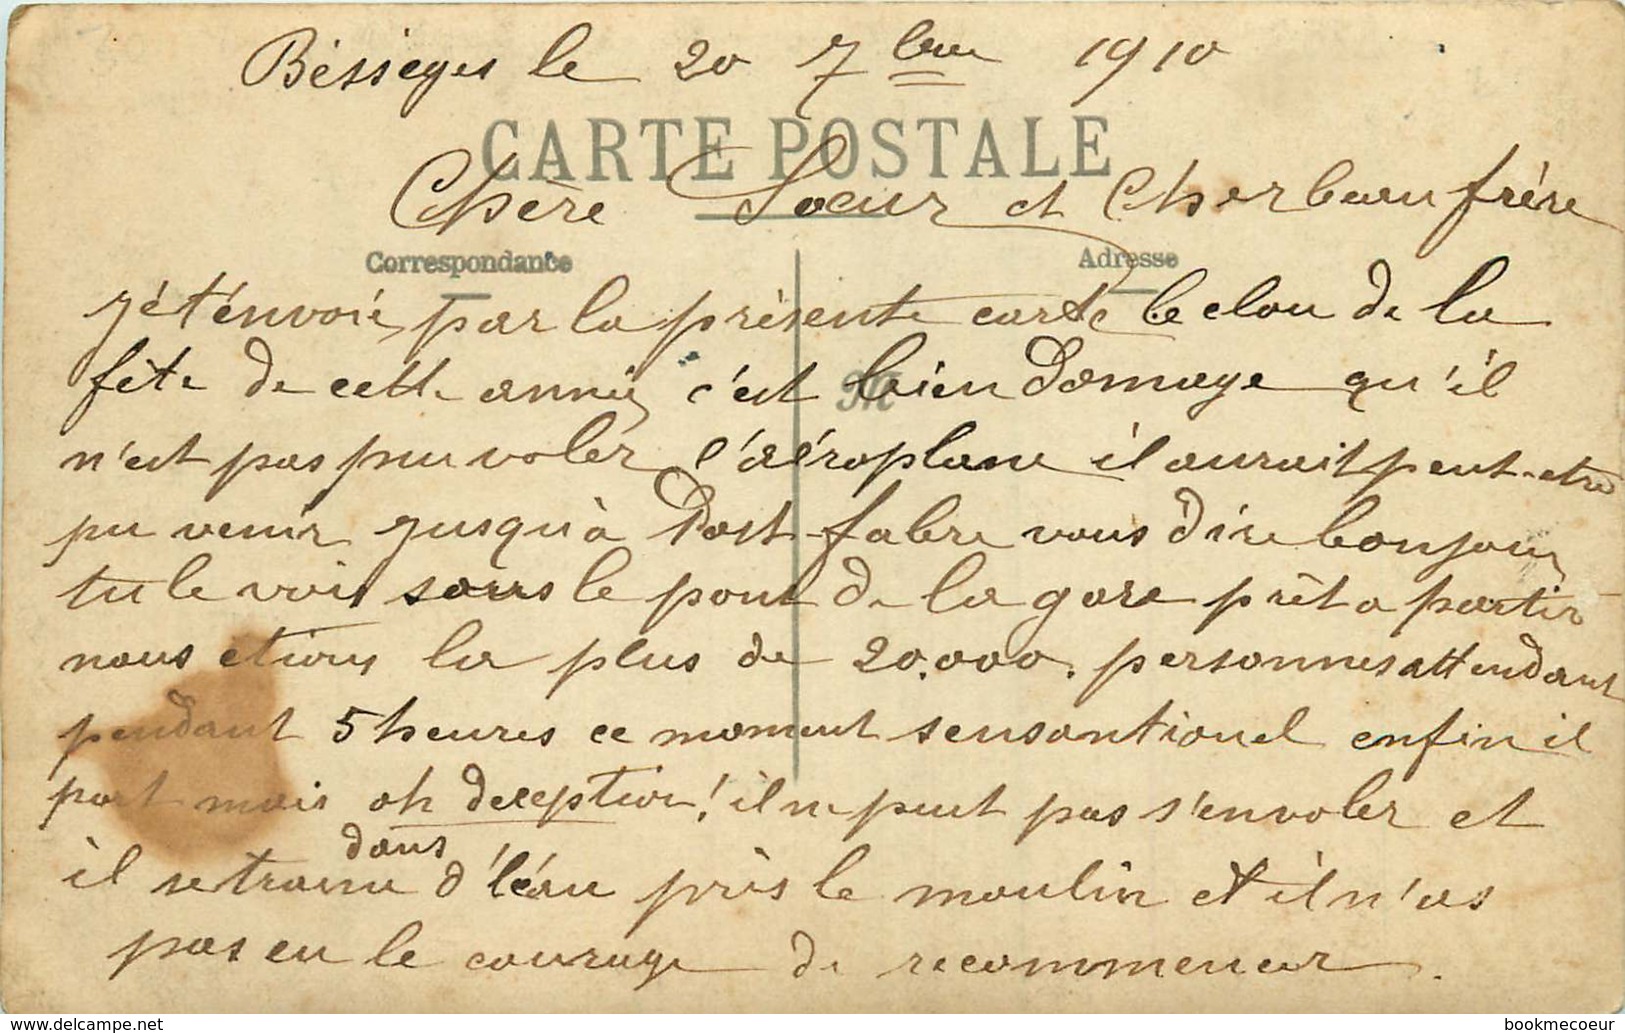 Bésseges le 20 7bre 1910
CARTE POSTALE
Chère Soeur et Cher beau frère
Correspondance
Adresse
Jé t'énvoie par la présente carte le clou de la
fête de cette anné c'est bien domage qu'il
M
n'est pas puu voler l'aéroplane il aurait peut-etre
pu venir jusqu'à Post fabre vous dire bonjour
tu le vois sous le pont de la gare prêt a partir
nous etions la plus de 20.000. personnes attendant
pendant 5 heures ce moment sensantionel enfin il
part mais oh deception! il n peut pas s'envoler et
dans
il se traine d'léau près le moulin et il n'as
pas eu le courage de recommencer.
bookmecoeur
www.delcampe.net